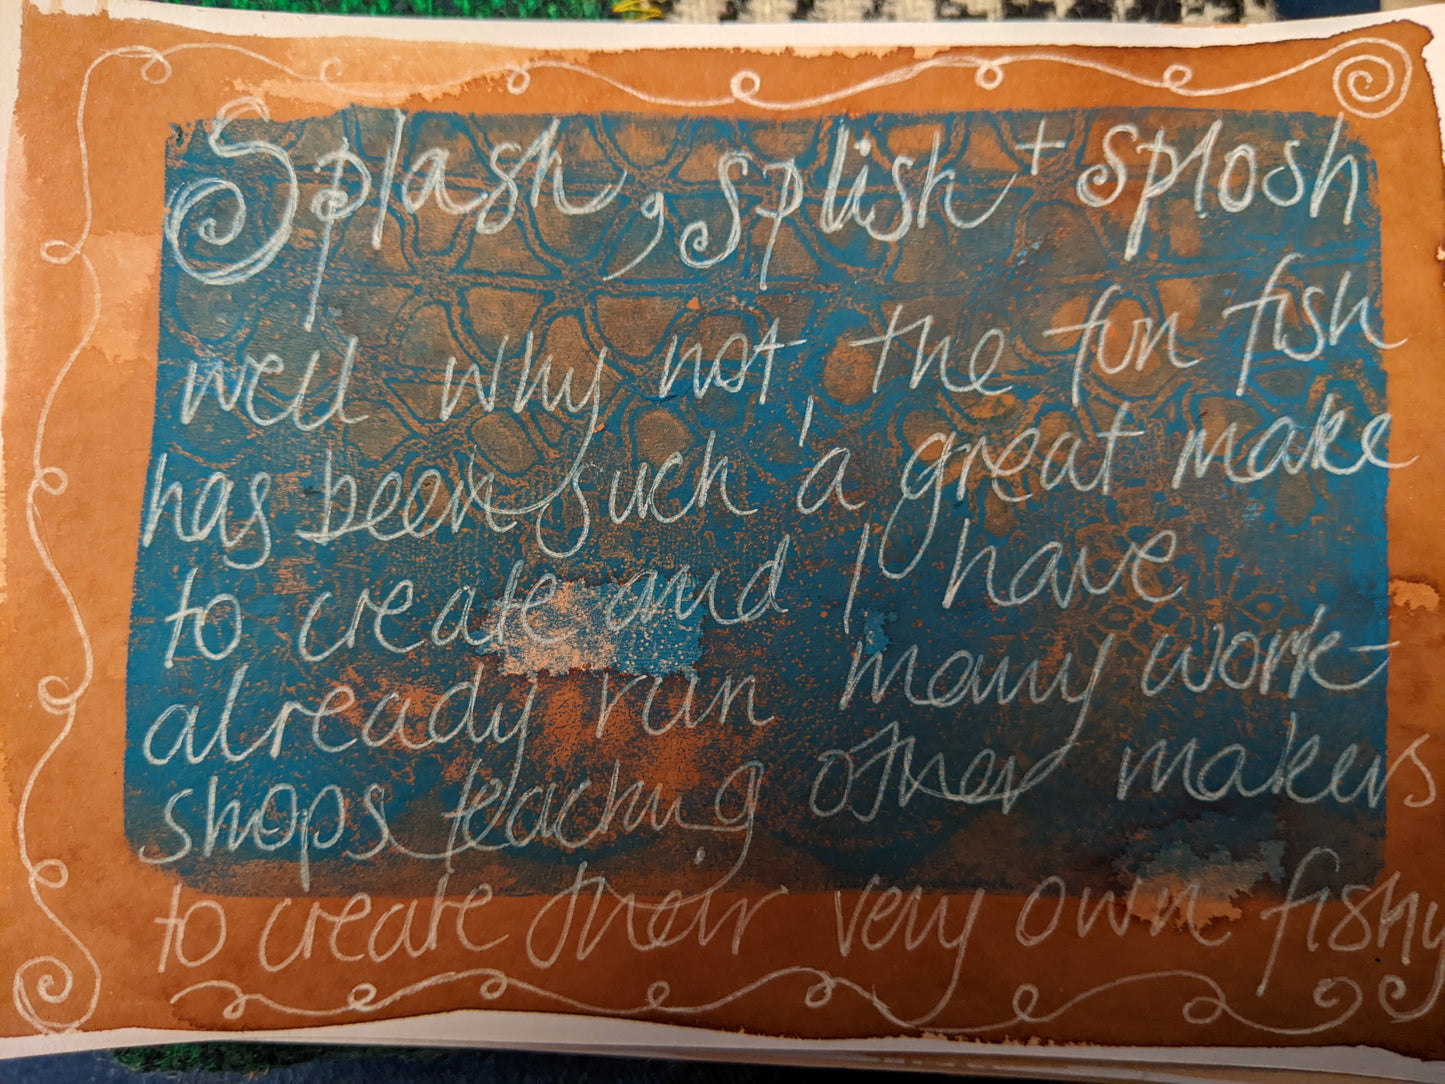 Splash, splish + splosh
well why not, the fun fish
has been such a great make
to create and I have
already run many work-
shops teaching other makers
to create their very own fishy